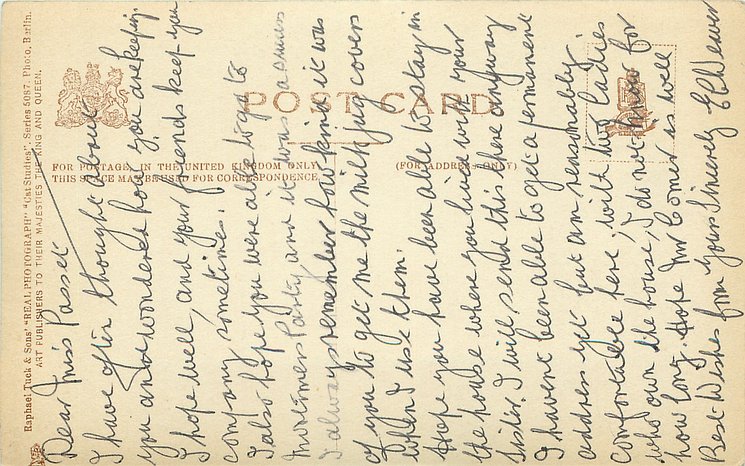 Raphael Tuck & Sons' "REAL PHOTOGRAPH" "Cat Studies". Series 5087. Photo, Berlin.
ART PUBLISHERS TO THEIR MAJESTIES THE KING AND QUEEN.
POST CARD
FOR POSTAGE IN THE UNITED KINGDOM ONLY
THIS SPACE MAY BE USED FOR CORRESPONDENCE.
(FOR ADDRESS ONLY)
Dear Miss Passet
I have often thought about
you and wondered how you are keeping.
I hope well, and your friends keep you
company sometimes.
I also hope you were able to go to
Mortimers Party and it was a success
I always remember how kind it was
of you to get me the milk jug covers
when I use them.
Hope you have been able to stay in
the house where you lived with your
sister. I will send this here anyway
I havent been able to get a permanent
address yet but am reasonably
comfortable here, with two ladies
who own the house, I do not know for
how long. Hope Mr Comer is well
Best Wishes from Yours Sincerely E C Weaver